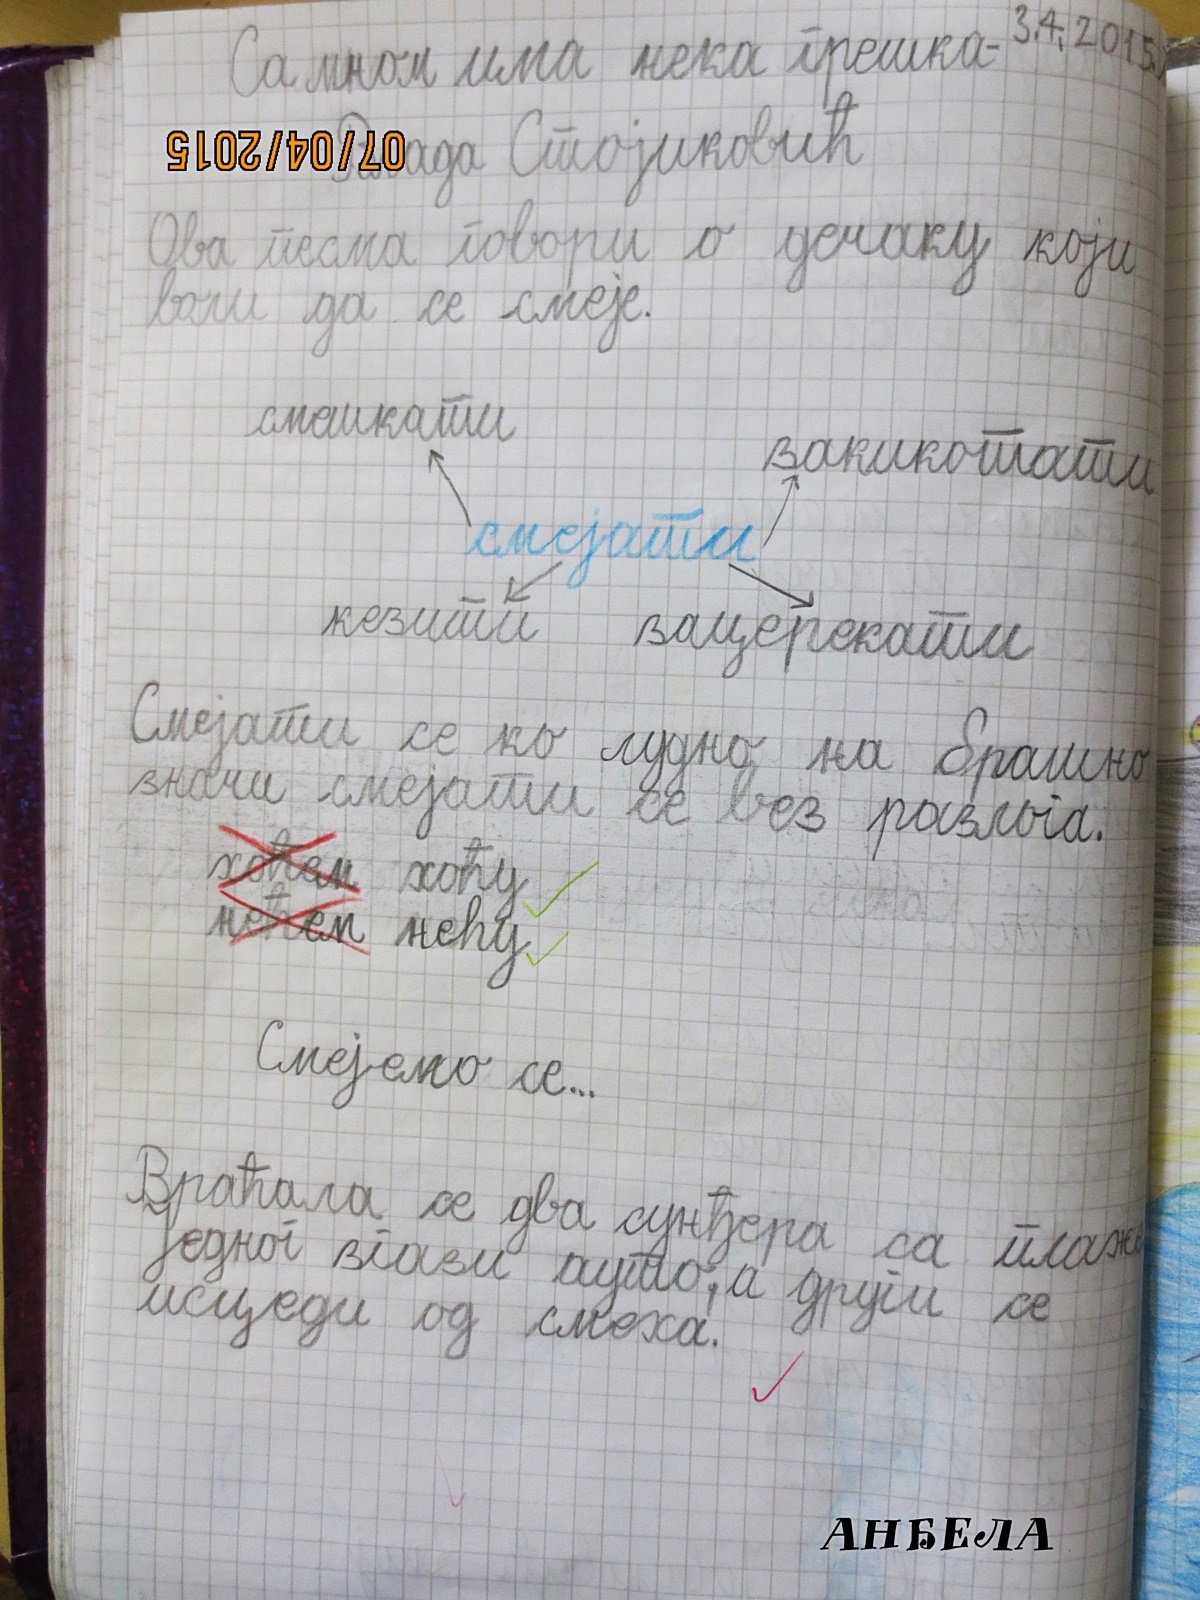 3.4. 2015.
Са мном има нека грешка-
07/04/2015
Влада Стојиковић
Ова песма говори о дечаку који
воли да се смеје.
смешкати
закикотати
смејати
кезити зацерекати
Смејати се ко лудно на брашно
значи смејати се без разлога.
хоћем хоћу
нећем нећу
Смејемо се...
Враћала се два сунђера са плаже
једног згази ауто, а други се
исцеди од смеха.
АНБЕЛА